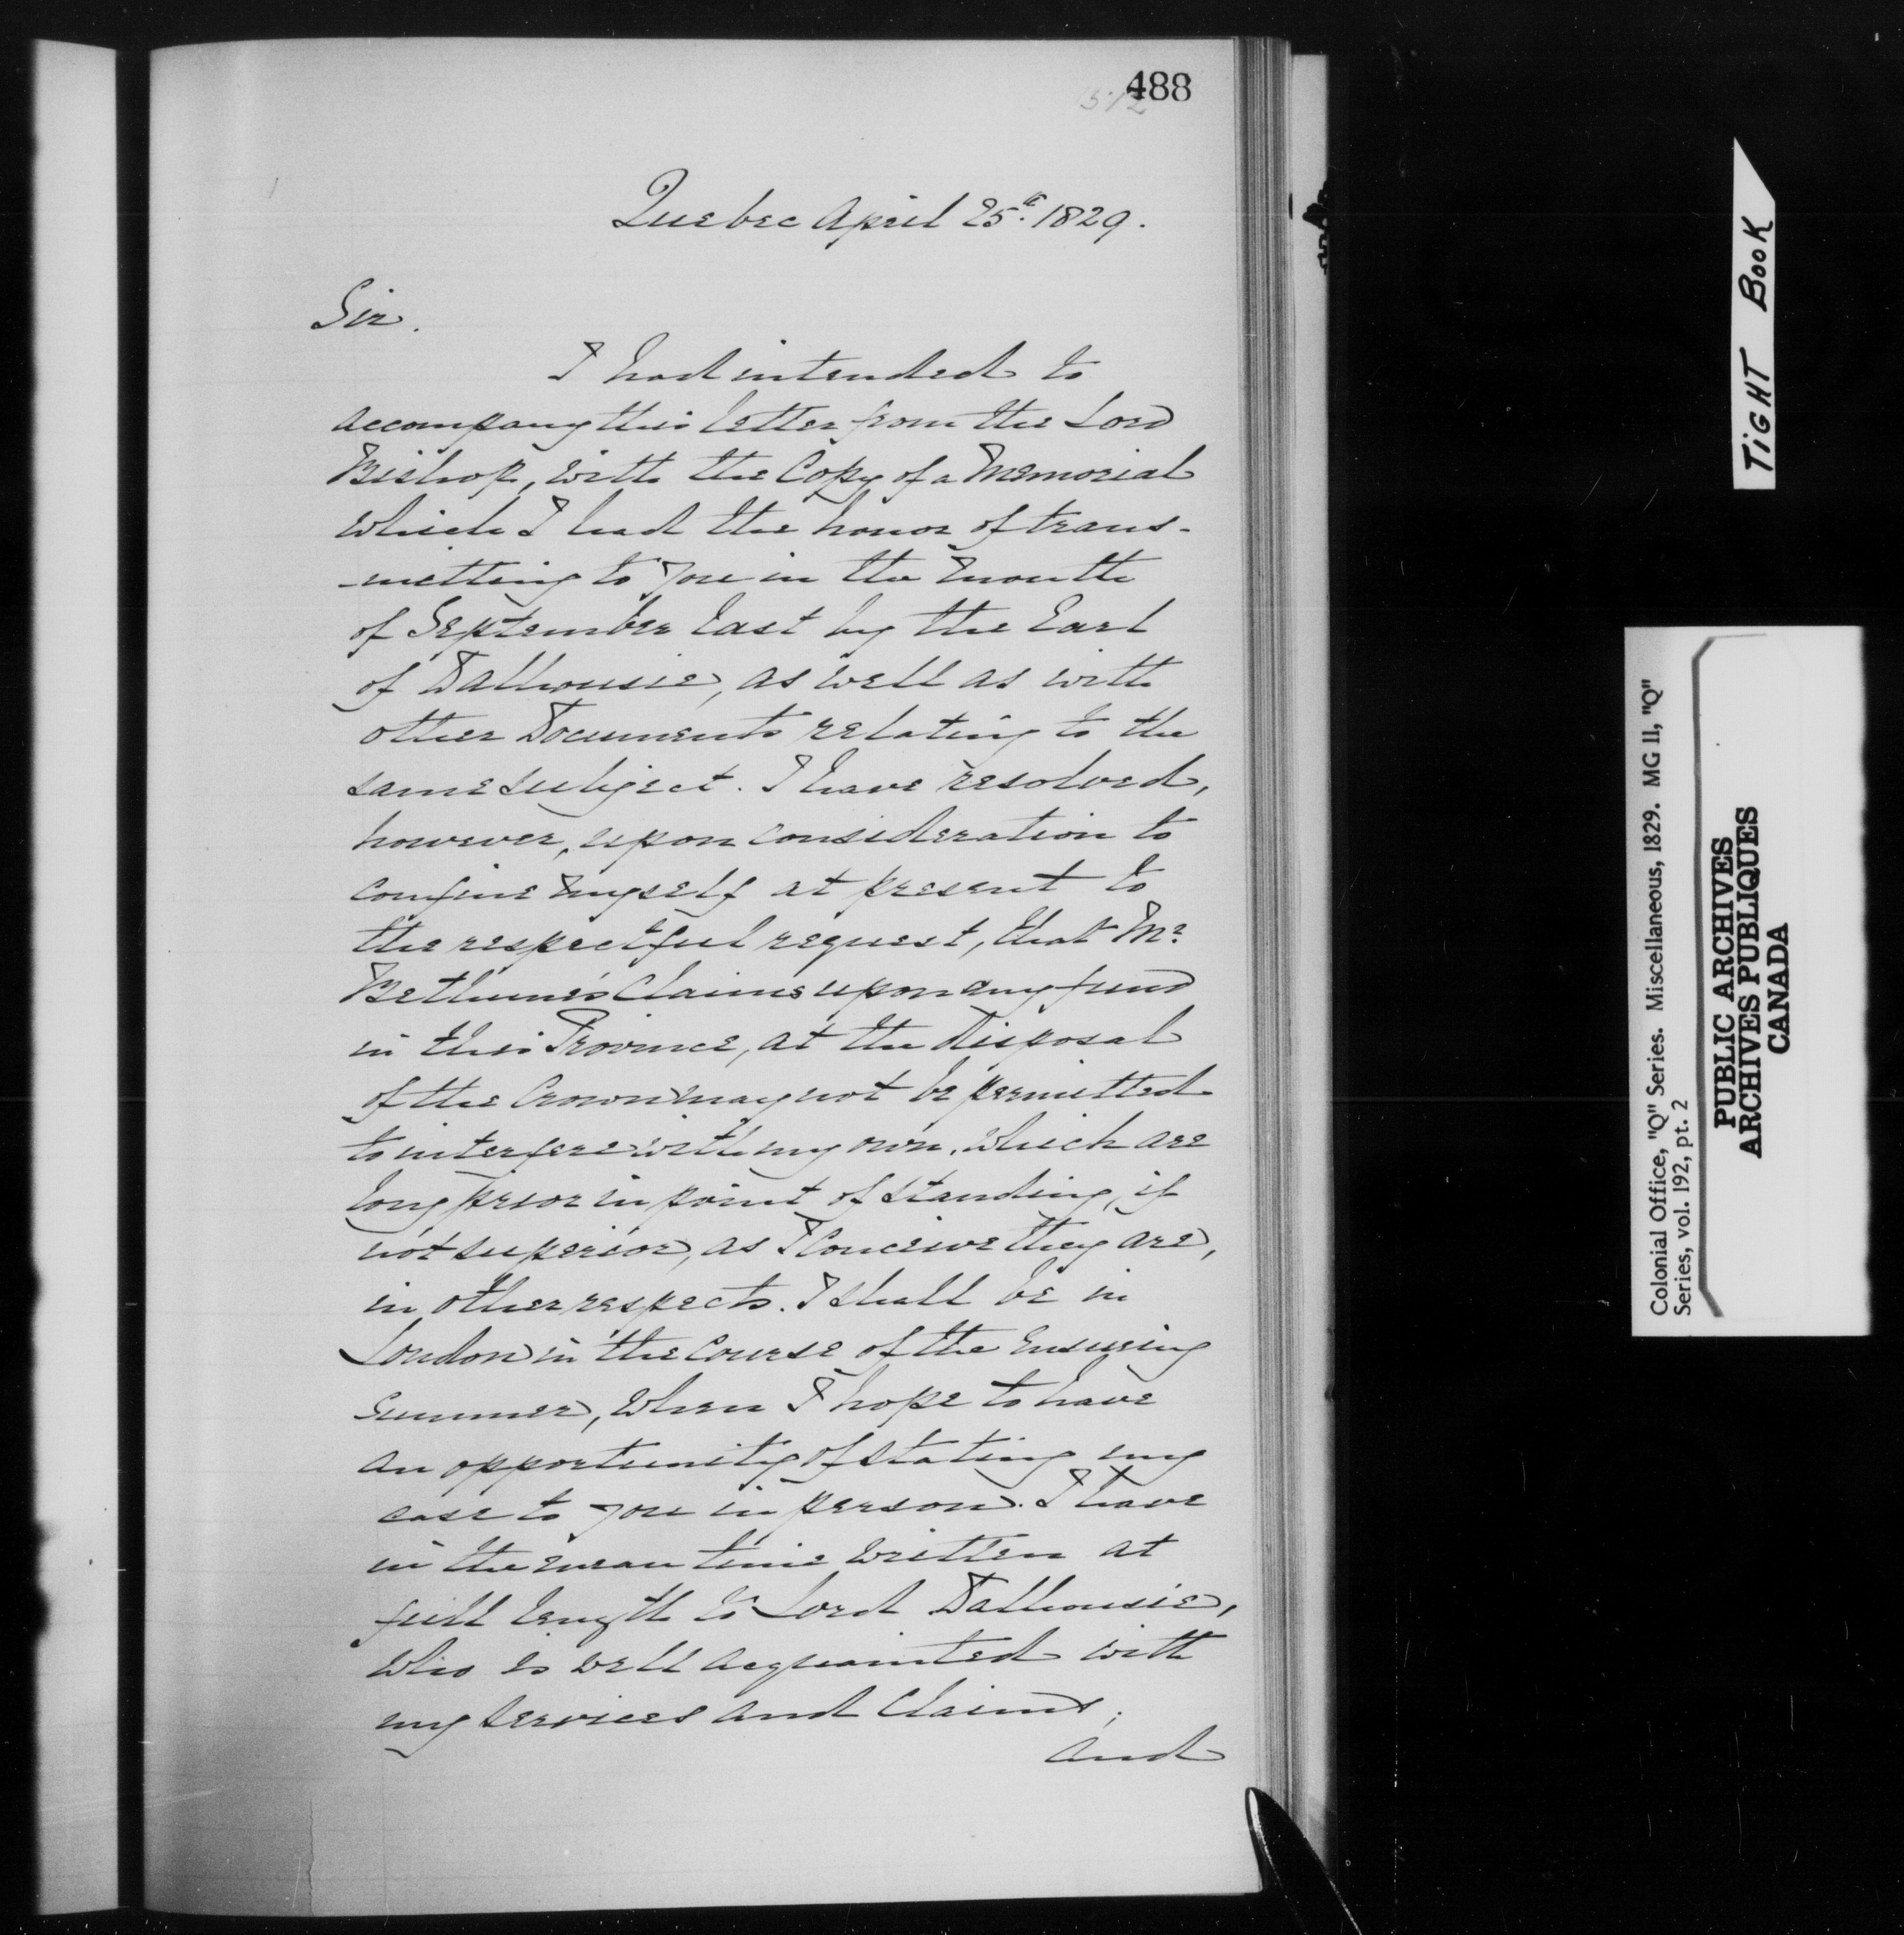 488
512
Quebec April 25th. 1829.
Sir.
I had intended to
accompany this letter from the Lord
Bishop, with the Copy of a Memorial
which I had the honor of trans-
-mitting to you in the month
of September last by the Earl
of Dalhousie, as well as with
other Documents relating to the
same subject. I have resolved,
however, upon consideration to
confine myself at present to
the respectful request, that Mr.
Bethune's Claims upon any fund
in this Province, at the disposal
of the Crown may not be permitted
to interfere with my own, which are
long prior in point of standing, if
not superior, as I conceive they are,
in other respects. I shall be in
London in the course of the ensuing
Summer, when I hope to have
an opportunity of stating my
case to you in person. I have
in the mean time written at
full length to Lord Dalhousie,
who is well acquainted with
my services and claims,
and
TIGHT BOOK
Colonial Office, "Q" Series. Miscellaneous, 1829. MG 11, "Q"
Series, vol. 192, pt. 2
PUBLIC ARCHIVES
ARCHIVES PUBLIQUES
CANADA